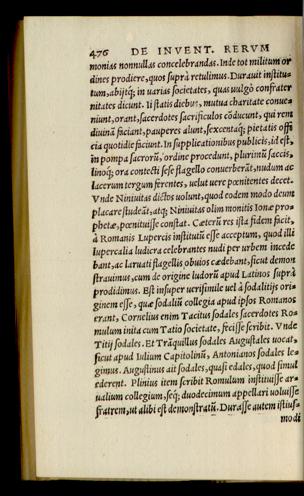 476 DE INVENT. RERVM
monias nonnullas concelebrandas. Inde tot militum or
dines prodiere, quos suprà retulimus. Durauit institu⸗
tum, abijtq; in varias societates, quas uulgò confrater
nitates dicunt. Ii statis diebus, mutua charitate conue⸗
niunt, orant, sacerdotes sacrificulos cōducunt, qui rem
diuinā faciant, pauperes alunt, sexcentaq; pietatis offi
cia quotidie faciunt. In supplicationibus publicis, id est,
in pompa sacrorū, ordine procedunt, plurimū saccis,
linoq; ora contecti sese flagello conuerberāt, nudum ac
lacerum tergum ferentes, uelut uere pœnitentes decet.
Vnde Niniuitas dictos uolunt, quod eodem modo deum
placare studeāt, atq; Niniuitas olim monitis Ionæ pro⸗
phetæ, pœnituisse constat. Cæterū res ista fidem facit,
à Romanis Lupercis institutū esse acceptum, quod illi
lupercalia ludicra celebrantes nudi per urbem incede
bant, ac laruati flagellis obuios cædebant, sicut demon
strauimus, cum de origine ludorū apud Latinos suprà
prodidimus. Est insuper uerisimile uel à sodalitijs ori⸗
ginem esse, quæ sodaliū collegia apud ipsos Romanos
erant, Cornelius enim Tacitus sodales sacerdotes Ro⸗
mulum inita cum Tatio societate, fecisse scribit. Vnde
Titij sodales. Et Trāquillus sodales Augustales uocat,
sicut apud Iulium Capitolinū, Antonianos sodales le⸗
gimus. Augustinus ait sodales, quasi edales, quod simul
ederent. Plinius item scribit Romulum instituisse ar⸗
ualium collegium, seq; duodecimum appellari uoluisse
fratrem, ut alibi est demonstratū. Durasse autem istius⸗
modi